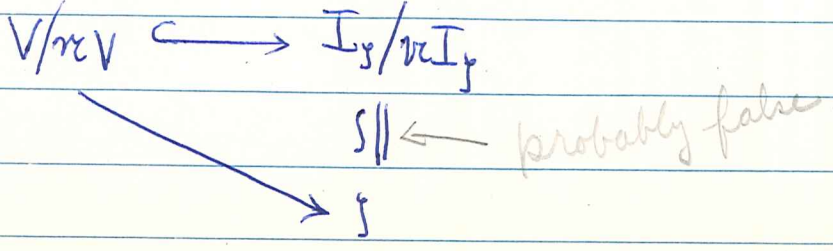 V/nV ↪ I_ξ/nI_ξ
S|| ← probably false
ξ